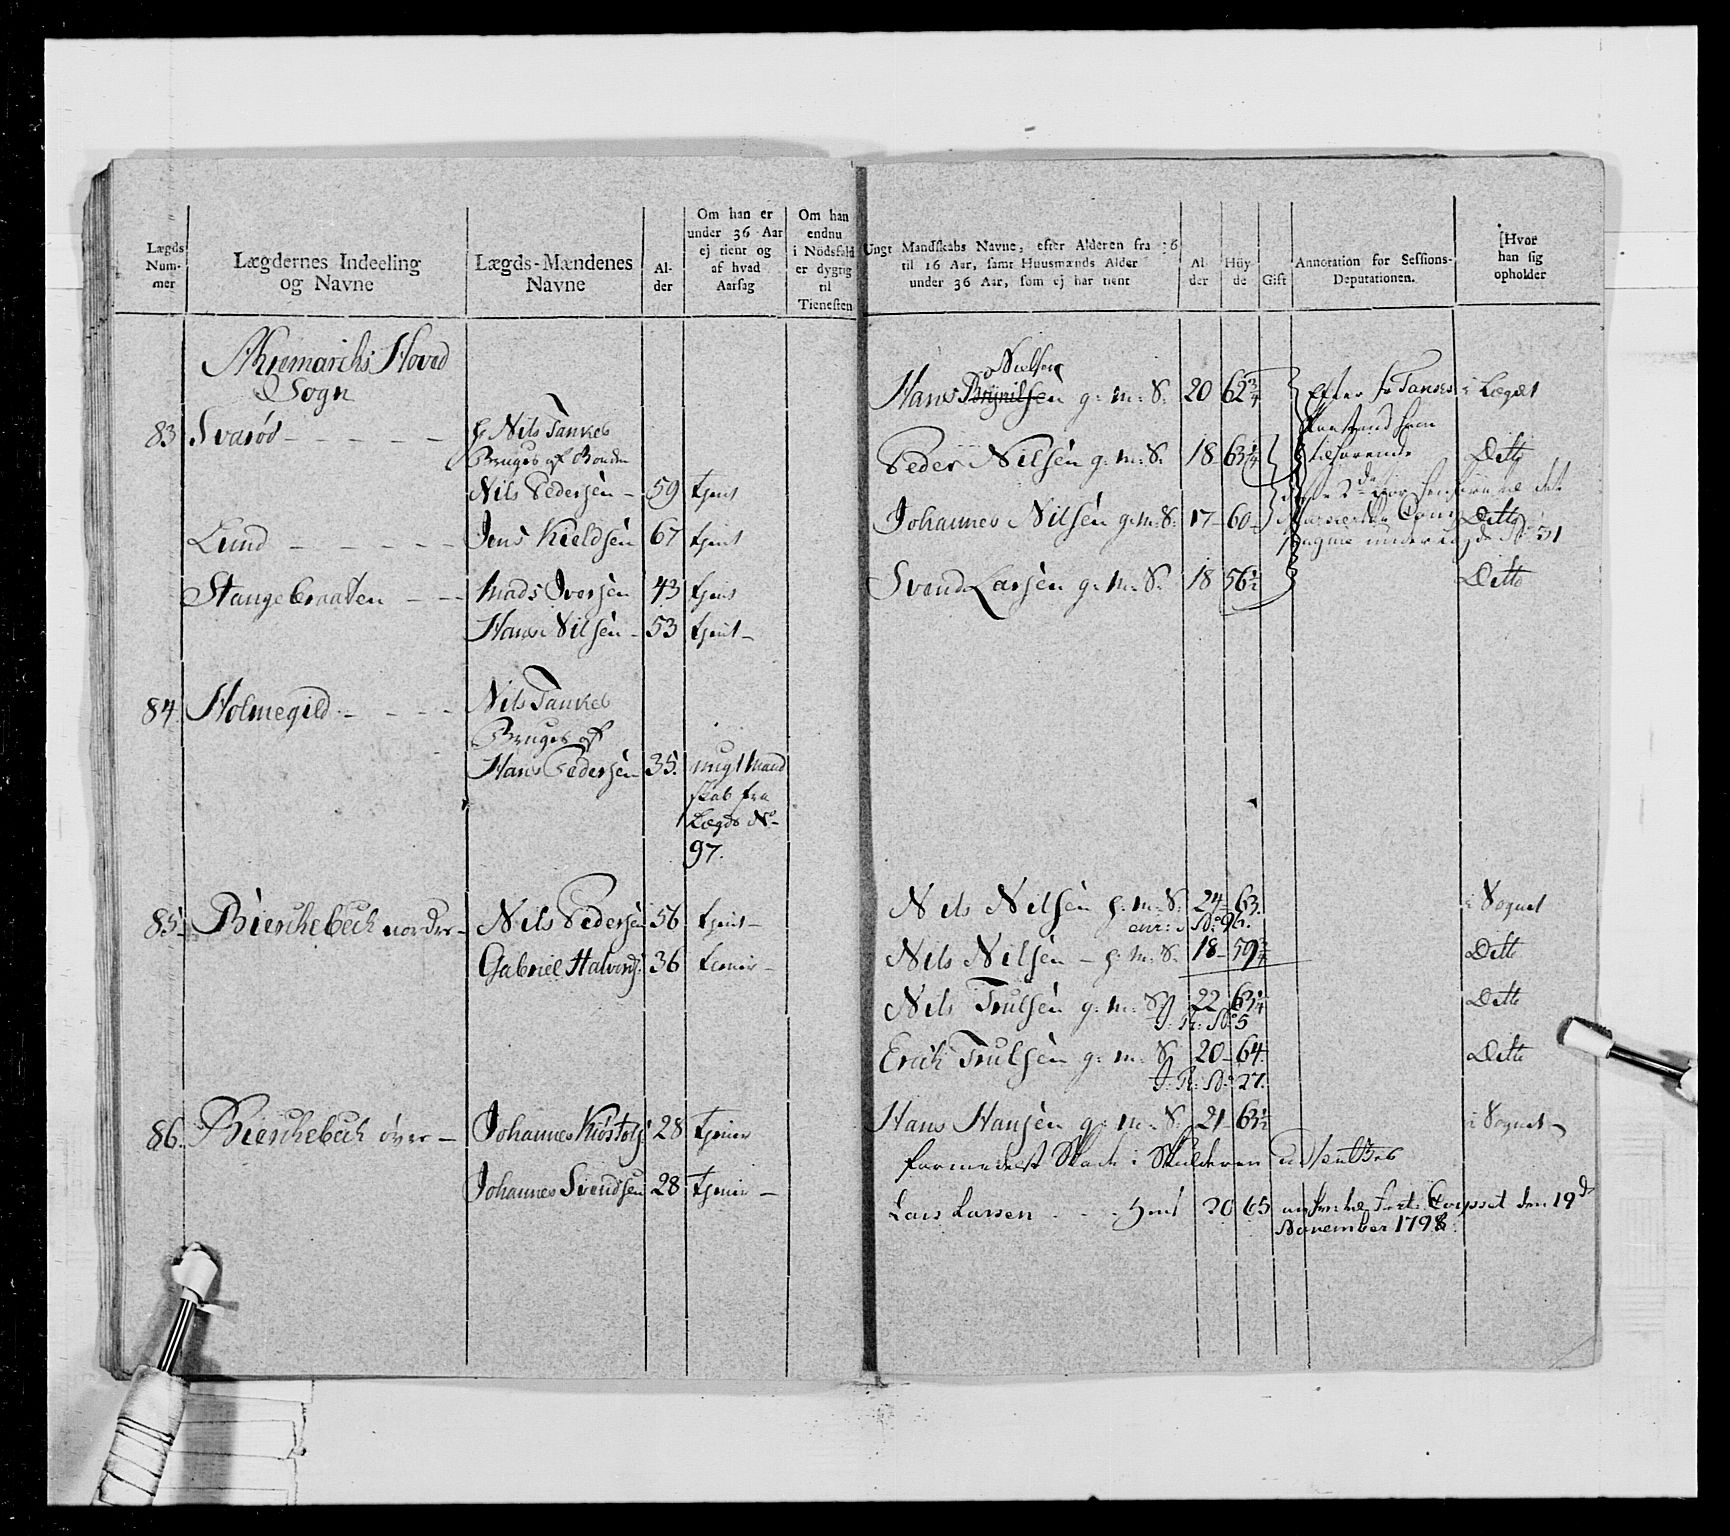 Lægds
Num-
mer
Lægdernes Indeeling
og Navne
Lægds-Mændenes
Navne
Al-
der
Om han er
under 36 Aar
ej tient og
af hvad
Aarsag
Om han
endnu
i Nödsfald
er dygtig
til
Tienesten
Sogn
83 Svarød
Nils Tankes
Bruges af Bonden
Nils Pedersen 59 tjent
Lund Jens Kieldsen 67 tjent
Stangebraaten Mads Iversen 43 tjent
Hans Nilsen 53 tjent
84 Holmegild Nils Tankes
Bruges af
Hans Pedersen 35. ungt mand
skab fra
Lægds No
97.
85 Bierchebech nordre Nils Pedersen 56 tjent
Gabriel Halvors: 36
86. Bierchebech övre Johannes 28 tjener
Johannes Svendsen 28 tjener
Ungt Mandskabs Navne, efter Alderen fra 36
til 16 Aar, samt Huusmænds Alder
under 36 Aar, som ej har tient
Al-
der
Höy-
de
Gift
Annotation for Sessions-
Deputationen.
[Hvor
han sig
opholder
Nielsen
Hans Brynilsen g: m: S. 20 62 3/4 Efter i Lægdet
Peder Nilsen g: m: S. 18 63 1/4 Ditto
Johannes Nilsen g: m: S. 17 60 Ditto
Svend Larsen g: m: S. 18 56 1/2 Ditto
Nils Nilsen g: m: S. 24 63. i Sognet
Nils Nilsen g: m: S. 18 59 3/4 Ditto
Nils Trulsen g: m: S. 22 63 1/4 Ditto
J: R: No 5
Erich Trulsen g: m: S. 20 64 Ditto
J: R: No: 27.
Hans Hansen g: m: S. 21 63 1/2 i Sognet
formedelst Skade i Skulderen
Lars Larsen 20 65 Corpset den 19d
November 1798.